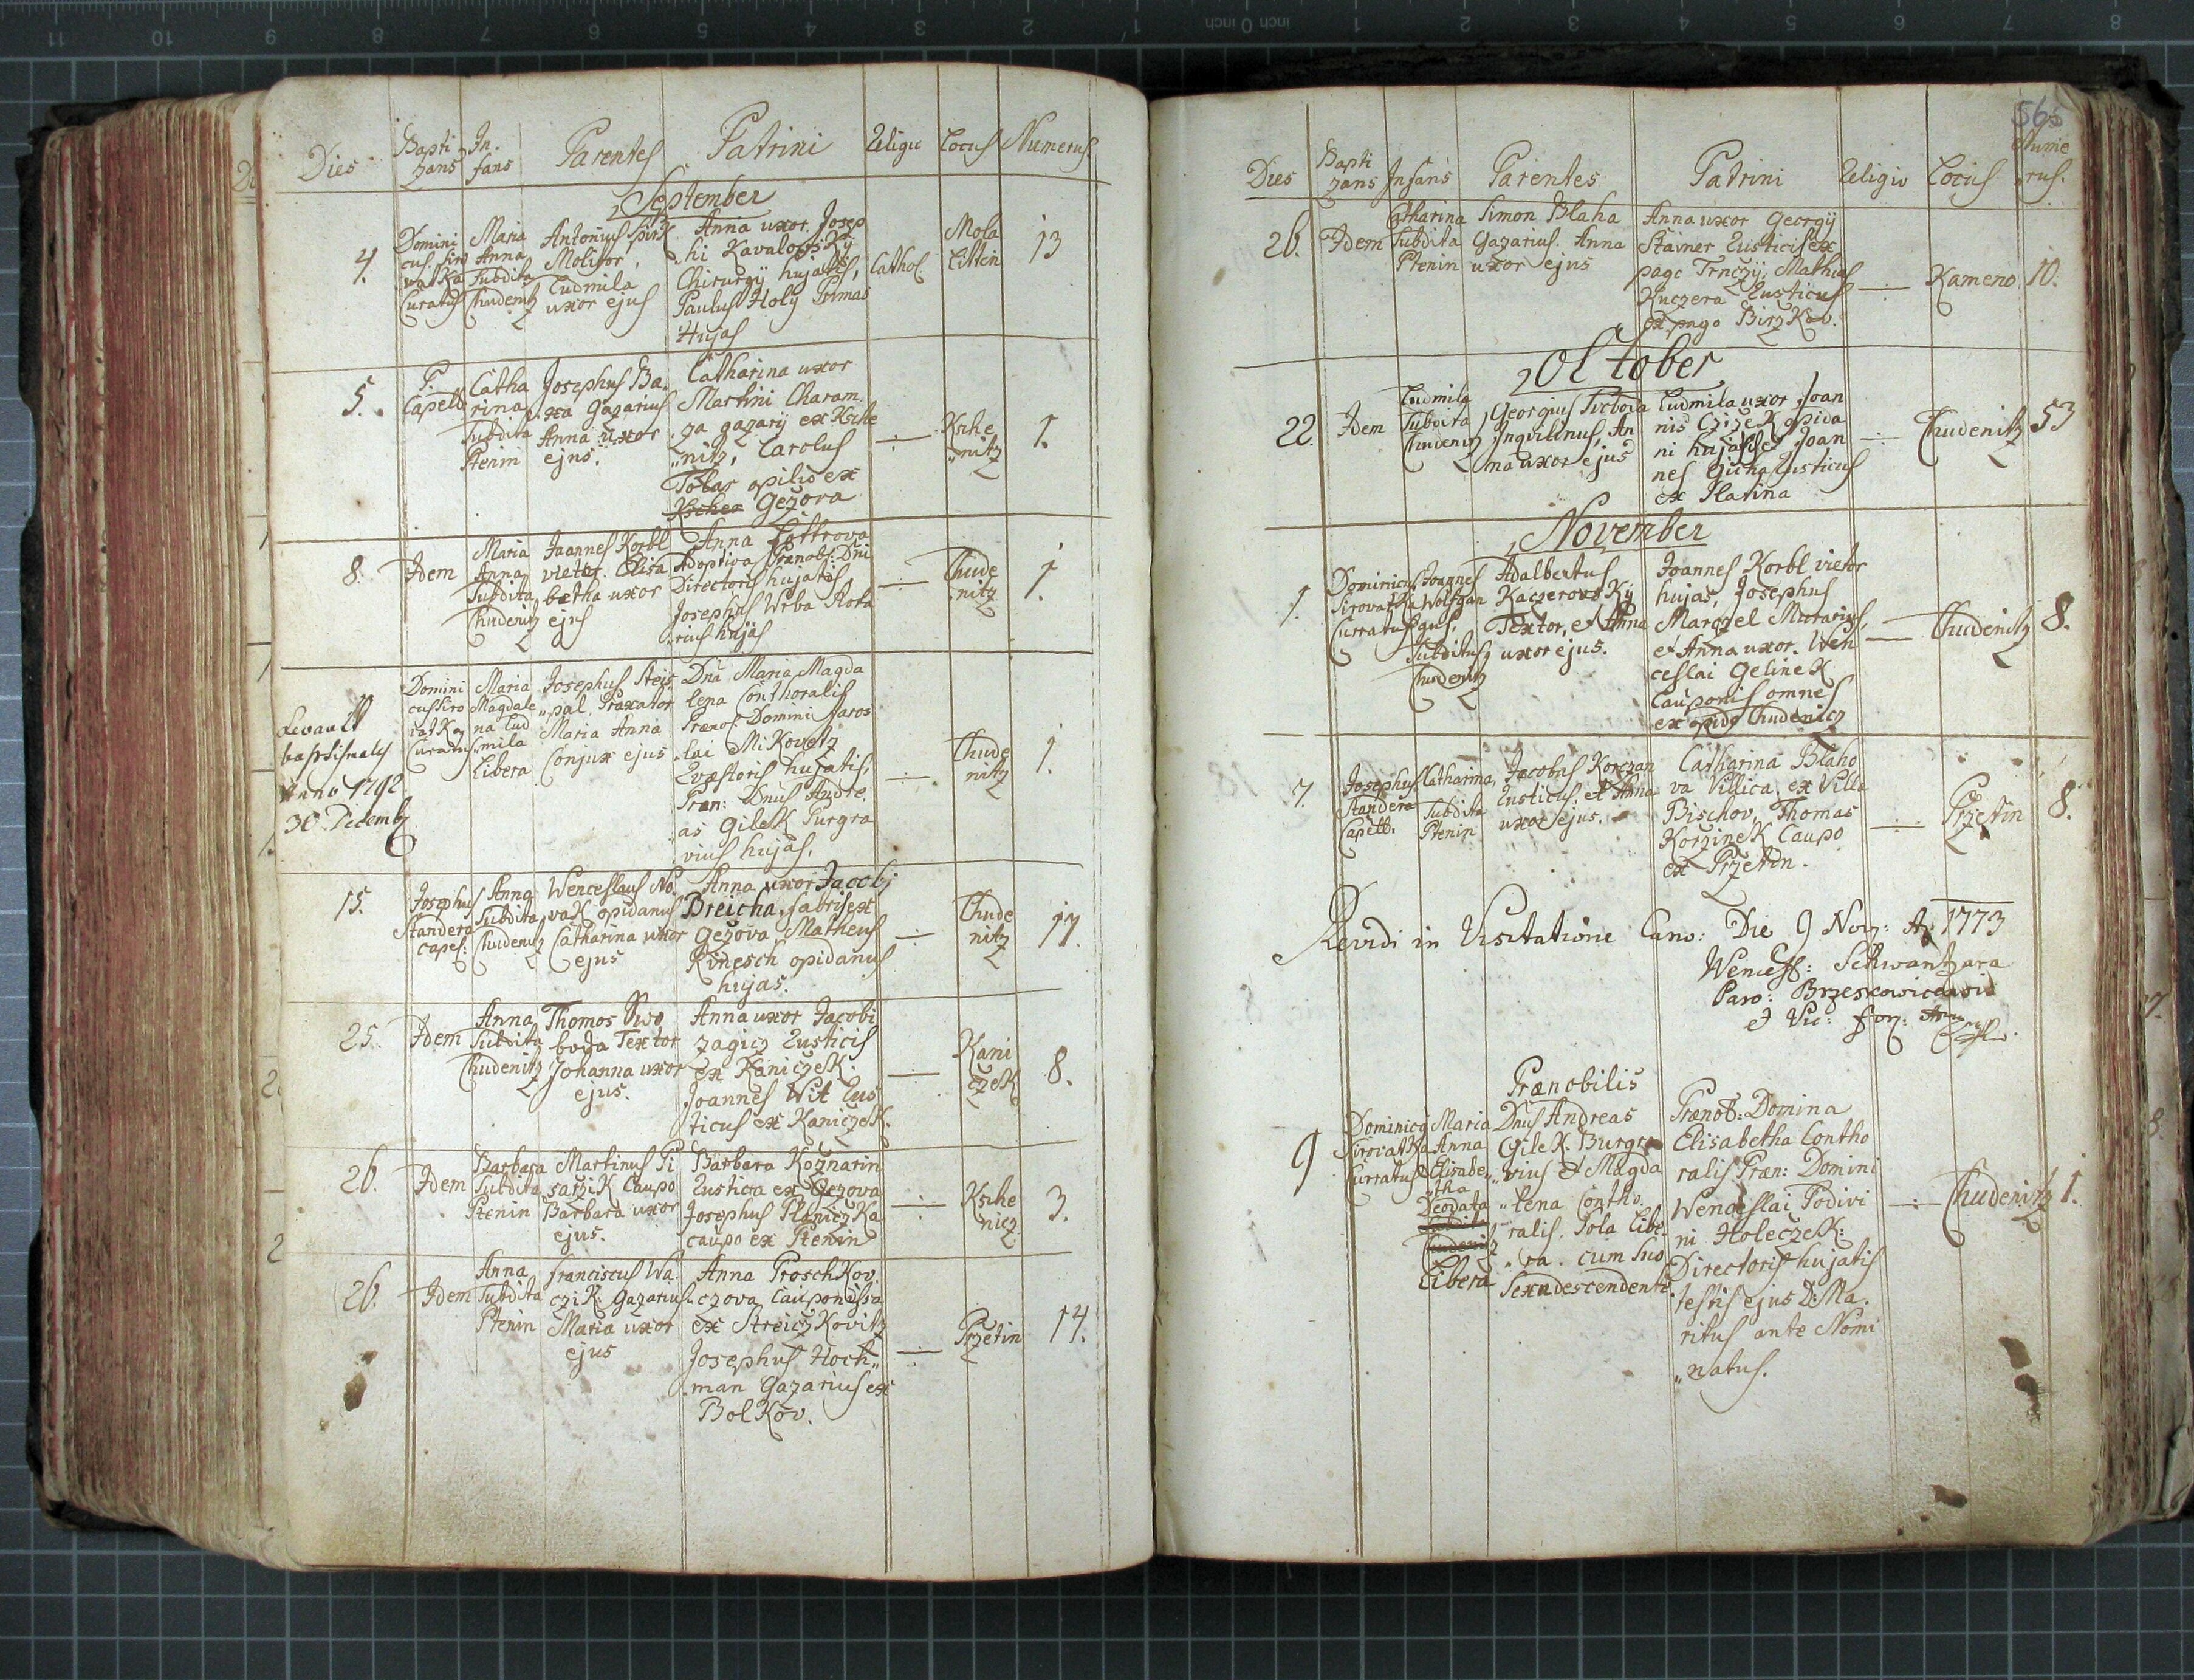 Dies Baptizans Infans Parentes Patrini Religio Locus Numerus
September
4. Dominicus Curatus
Maria Anna Subdita Chudenitz
Antonius
Molitor,
Ludmila
uxor ejus
Anna uxor Josep
hi
Chirurgij hujatis,
Paulus Holÿ Primas
Hujas
Cathol.
Mola
13
5.
P.
Capell
Catha
rina
Subdita
Ptenin
Josephus Ba
xa gazarius
Anna uxor
ejus.
Catharina uxor
Martini Charam
za gazarij ex Ksche
nitz, Carolus
Tobar opilio ex
Gezova
Ksche
nitz
1.
8. Idem
Maria
Anna
Subdita
Chudenitz
Joannes Korbl
vietor. Elisa
betha uxor
ejus
Anna
Adoptiva Prænob: Dni
Directoris hujatis,
Josephus Wrba Rota
rius hujas
Chude
nitz
1.
baptismales
Anno 1792
30 Decemb
Domini
cus Siro
watka
Curatus
Maria
Magdale
na Lud
mila
Libera
Josephus Steis
pal Braxator
Maria Anna
Conjux ejus
Dna Maria Magda
lena Conthoralis
Prænob: Domini Jaros
lai Mikovetz
Quæstoris hujatis,
Præn: Dnus Andre
as Gilek Purgra
vius hujas,
Chude
nitz
1.
15.
Josephus
Standera
capel:
Anna
Subdita
Chudenitz
Wenceslaus No
vak opidanus
Catharina uxor
ejus
Anna uxor Jacobi
Breicha, fabris ex
Gezova Matheus
Kinesch opidanus
hujas.
Chude
nitz
17.
25. Idem
Anna
Subdita
Chudenitz
Thomos Swo
boda Textor
Johanna uxor
ejus.
Anna uxor Jacobi
zagicz Rusticis
ex Kaniczek.
Joannes Wit Rus
ticus ex Kaniczek.
Kani
czek
8.
26. Idem
Barbara
Subdita
Ptenin
Martinus Pi
sarzik Caupo
Barbara uxor
ejus.
Barbara Koznarin
Rustica ex Gezova
Josephus Planiczka
caupo ex Ptenin
Ksche
nicz
3.
26. Idem
Anna
Subdita
Ptenin
Franciscus Wa
czik Gazarius
Maria uxor
ejus
Anna Proschkov
czova Cauponissa
ex Streiczkovitz
Josephus Hoch
man Gazarius ex
Bolkov.
Przetin
14.
565
Dies Baptizans Infans Parentes Patrini Religio Locus Numerus.
26. Idem
Catharina
Subdita
Ptenin
Simon Blaha
Gazarius. Anna
uxor ejus
Anna uxor Georgij
Stainer Rusticis ex
pago Trnczij, Mathias
Kuczera Rusticus
ex pago Birzkov.
Kameno 10.
October
22. Idem
Ludmila
Subdita
Chudenitz
Georgius Swoboda
Inqvilinus, An
na uxor ejus
Ludmila uxor Joan
nis Czizek opida
ni hujatis et Joan
nes Gicha Rusticus
ex Slatina
Chudenitz 53
November
1.
Dominicus
Sirovatka
Curratus
Joannes
Wolfgan
gus,
Subditus
Chudenitz
Adalbertus
Kaczerovskÿ
Textor, et Anna
uxor ejus.
Joannes Korbl vietor
hujas, Josephus
Marczel Murarius,
et Anna uxor. Wen
ceslai Gelinek
Cauponis omnes
ex opido Chudenicz
Chudenitz 8.
7.
Josephus
Standera
Capell:
Catharina,
Subdita
Ptenin
Jacobus Korczan
Rusticus: et Anna
uxor ejus.
Catharina Blaho
va Villica ex Villa
Bischov, Thomas
Korzinek Caupo
ex Przetin.
Przetin 8.
Revidi in Visitatione Cano: Die 9 Nov: Ao 1773
Wencesl: Schwantzara
Paro: Brzeskowicensis
et Vic: for:
9
Dominicus
Sirovatka
Curratus
Maria
Anna
Elisabe
tha
Deodata
Subdita
Chudenitz
Libera
Prænobilis
Dnus Andreas
Gilek Burgra
vius et Magda
lena Contho
ralis. Sola Libe
ra. cum suo
Sexu descendenti
Prænob: Domina
Elisabetha Contho
ralis Præn: Domini
Wenceslai Podivi
ni Holeczek:
Directoris hujatis
testis ejus D: Ma
ritus ante Nomi
natus.
Chudenitz 1.